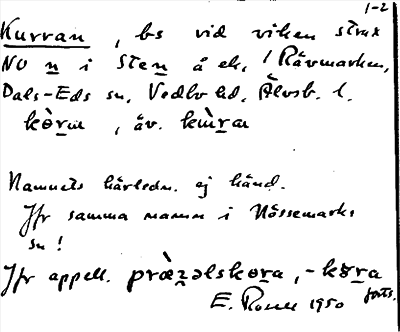 1-2
Kurran, bs vid viken strax
NO n i Sten å ek, i Rävmarken,
Dals-Eds sn, Vedbo hd, Älvsb. l.
kò̀rɐ, äv. kɯ̀ra
Namnets härledn. ej känd.
Jfr samma namn i Nössemarks
sn!
Jfr appell. præ̀zəlskɵra, -kɵra
forts.
E. Rosell 1950